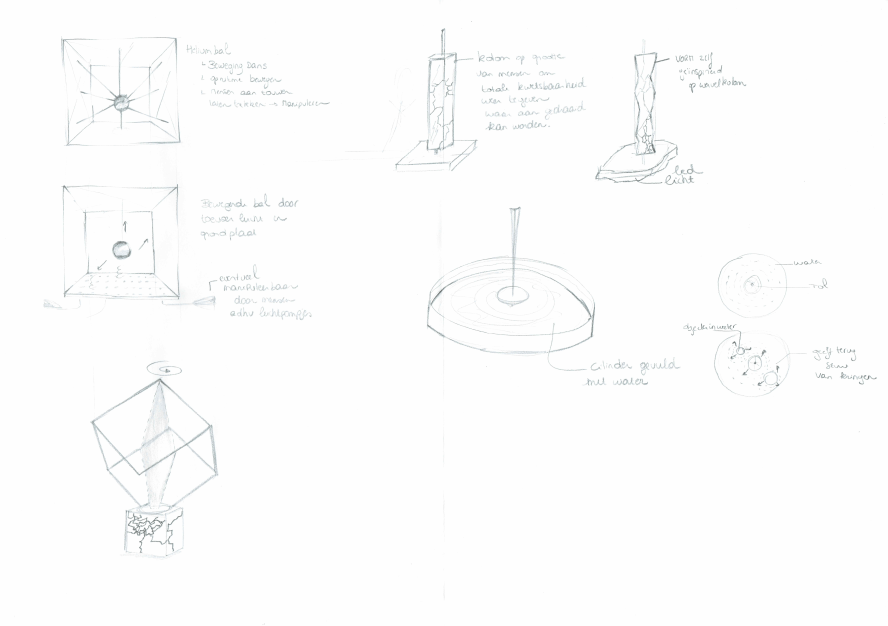 Heliumbal
Beweging Dans
bewegen
mensen aan touwen
laten trekken → manipuleren
Bewegende bal door
toevoer lucht in
grondplaat
eventueel
manipuleerbaar
door mensen
adhv luchtpompjes
kolom op grootte
van mensen om
totale kwetsbaarheid
weer te geven
waar aan gedaan
kan worden.
vorm zelf
geïnspireerd
op wervelkolom
led
licht
Cilinder gevuld
met water
water
objecten in water
geeft terug
van kringen